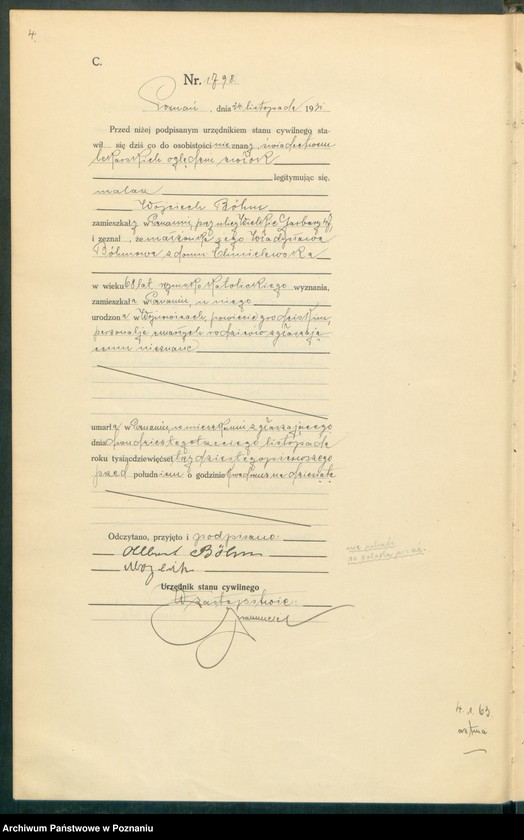 4.
C.
Nr. 1798.
Poznań, dnia 24 listopada 1931
Przed niżej podpisanym urzędnikiem stanu cywilnego sta-
wił się dziś co do osobistości nie znany, świadectwem
lekarskich oględzin zwłok
legitymując się,
malarz
Wojciech Böhm
zamieszkały w Poznaniu, przy ulicy Wielkie Garbary
i zeznał, że małżonka jego Władysława
Böhmowa z domu Chmielewska
w wieku 68 lat, rzymsko katolickiego wyznania,
zamieszkała w Poznaniu, u niego
urodzona w Wojnowicach, powiecie grodziskim,
personalja zmarłych rodziców zgłaszają-
cemu nieznane
umarła w Poznaniu, w mieszkaniu zgłaszającego
dnia dwudziestego trzeciego listopada
roku tysiącdziewięćset trzydziestego pierwszego
przed południem o godzinie
Odczytano, przyjęto i podpisano.
Albert Böhm
Urzędnik stanu cywilnego
W zastępstwie:
4. 1. 63
astma
Archiwum Państwowe w Poznaniu